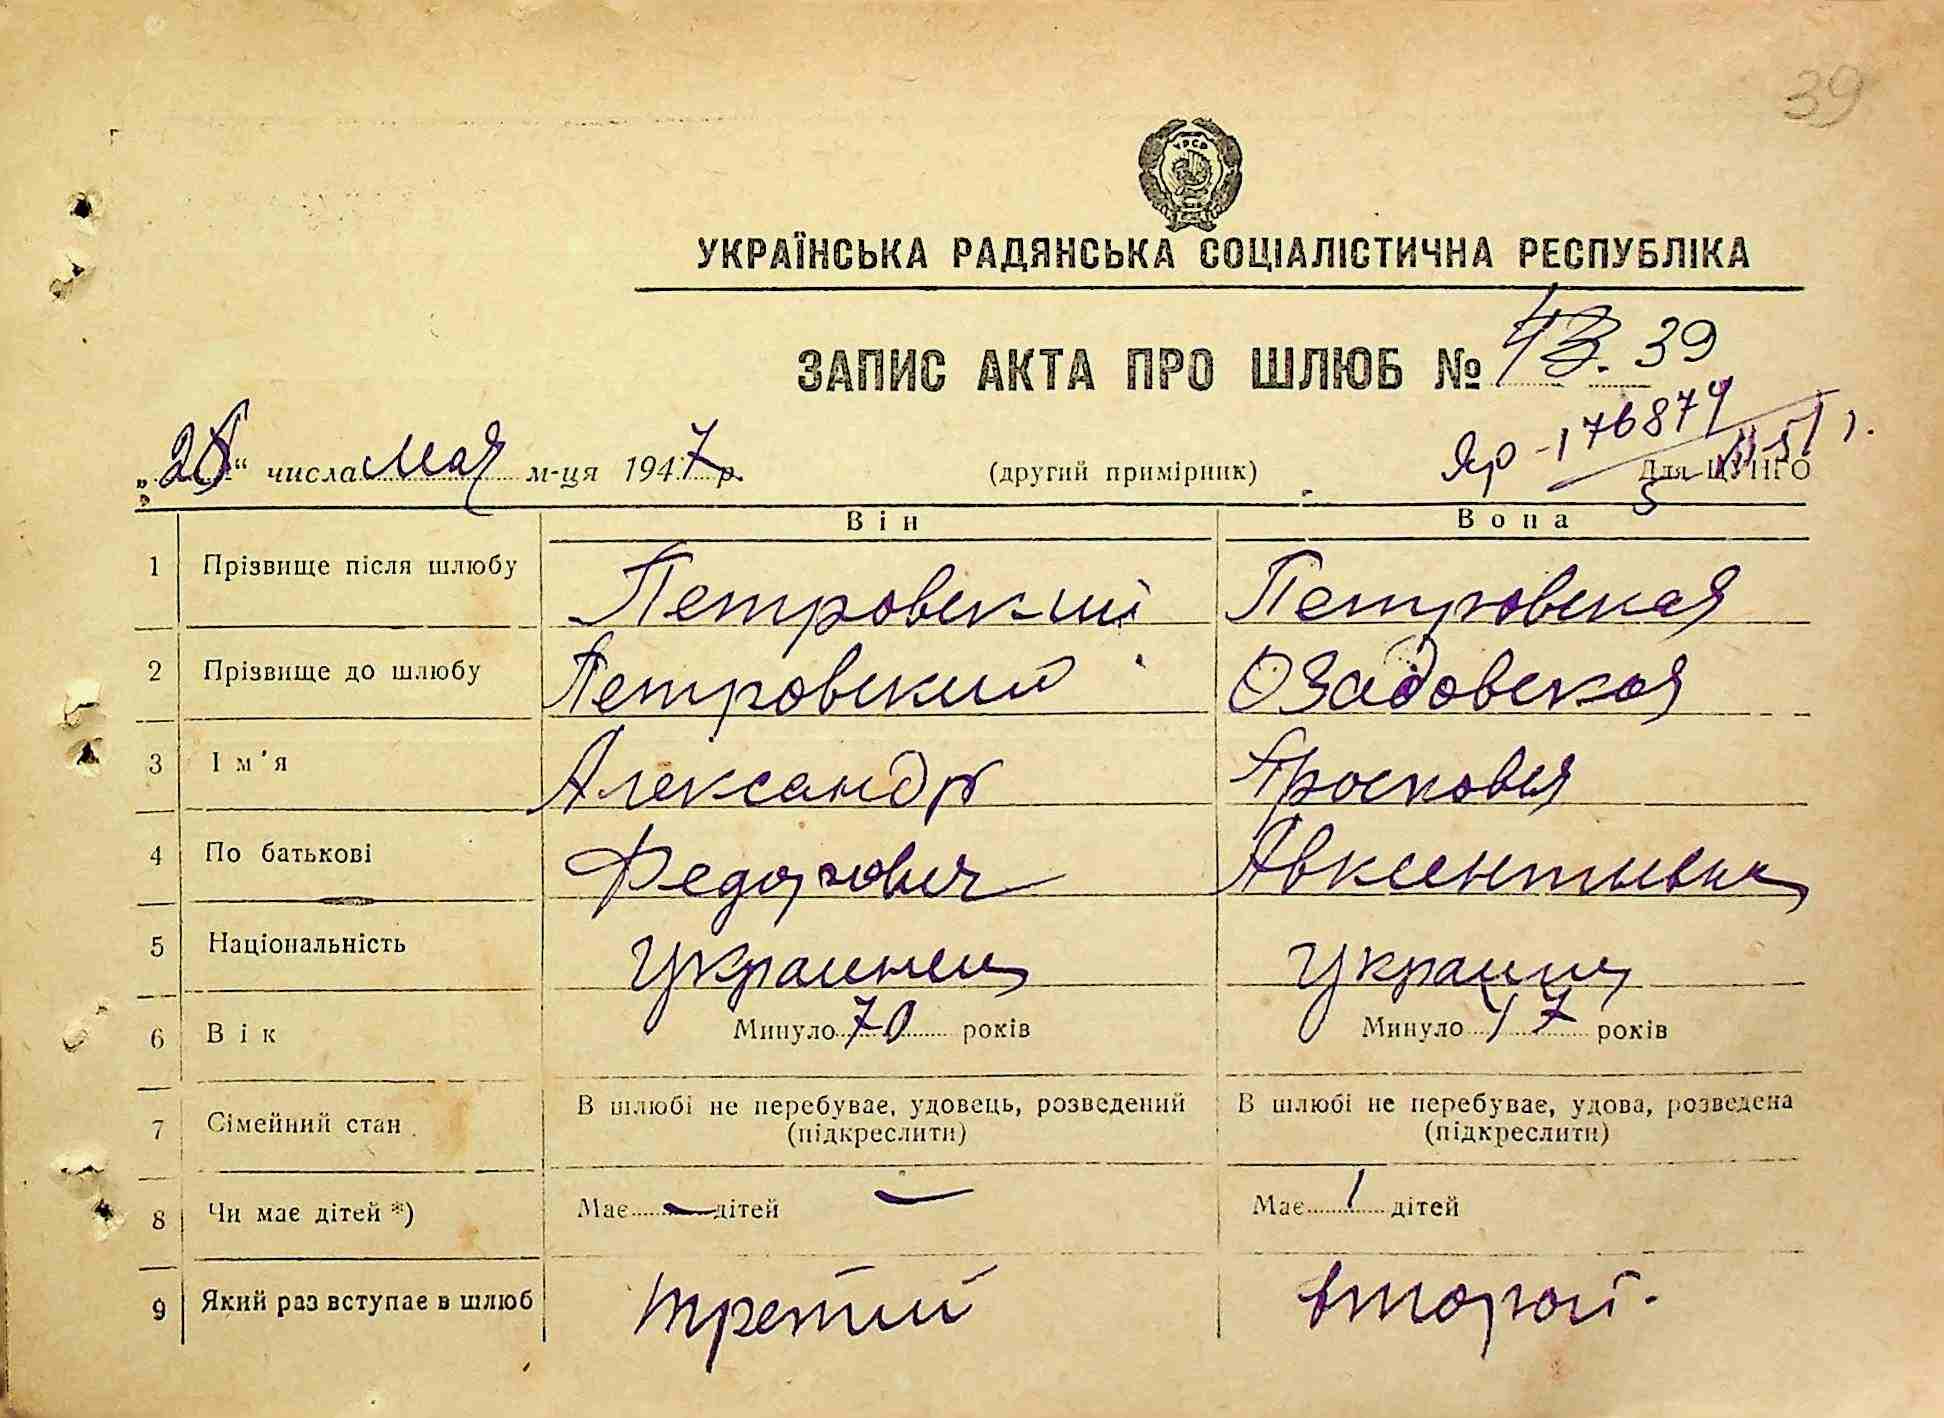 39
УРСР
УКРАЇНСЬКА РАДЯНСЬКА СОЦІАЛІСТИЧНА РЕСПУБЛІКА
ЗАПИС АКТА ПРО ШЛЮБ № 43. 39
„28“ числа мая м-ця 1947 р. (другий примірник) Для ЦУНГО
Яр - 176874
Він Вона
1 Прізвище після шлюбу Петровский Петровская
2 Прізвище до шлюбу Петровский Озадовская
3 Ім'я Александр Просковья
4 По батькові Федорович Авксентьевна
5 Національність Украинец Украин
6 Вік Минуло 70 років Минуло 47 років
7 Сімейний стан В шлюбі не перебуває, удовець, розведений (підкреслити) В шлюбі не перебуває, удова, розведена (підкреслити)
8 Чи має дітей *) Має — дітей — Має 1 дітей
9 Який раз вступає в шлюб третий второй.